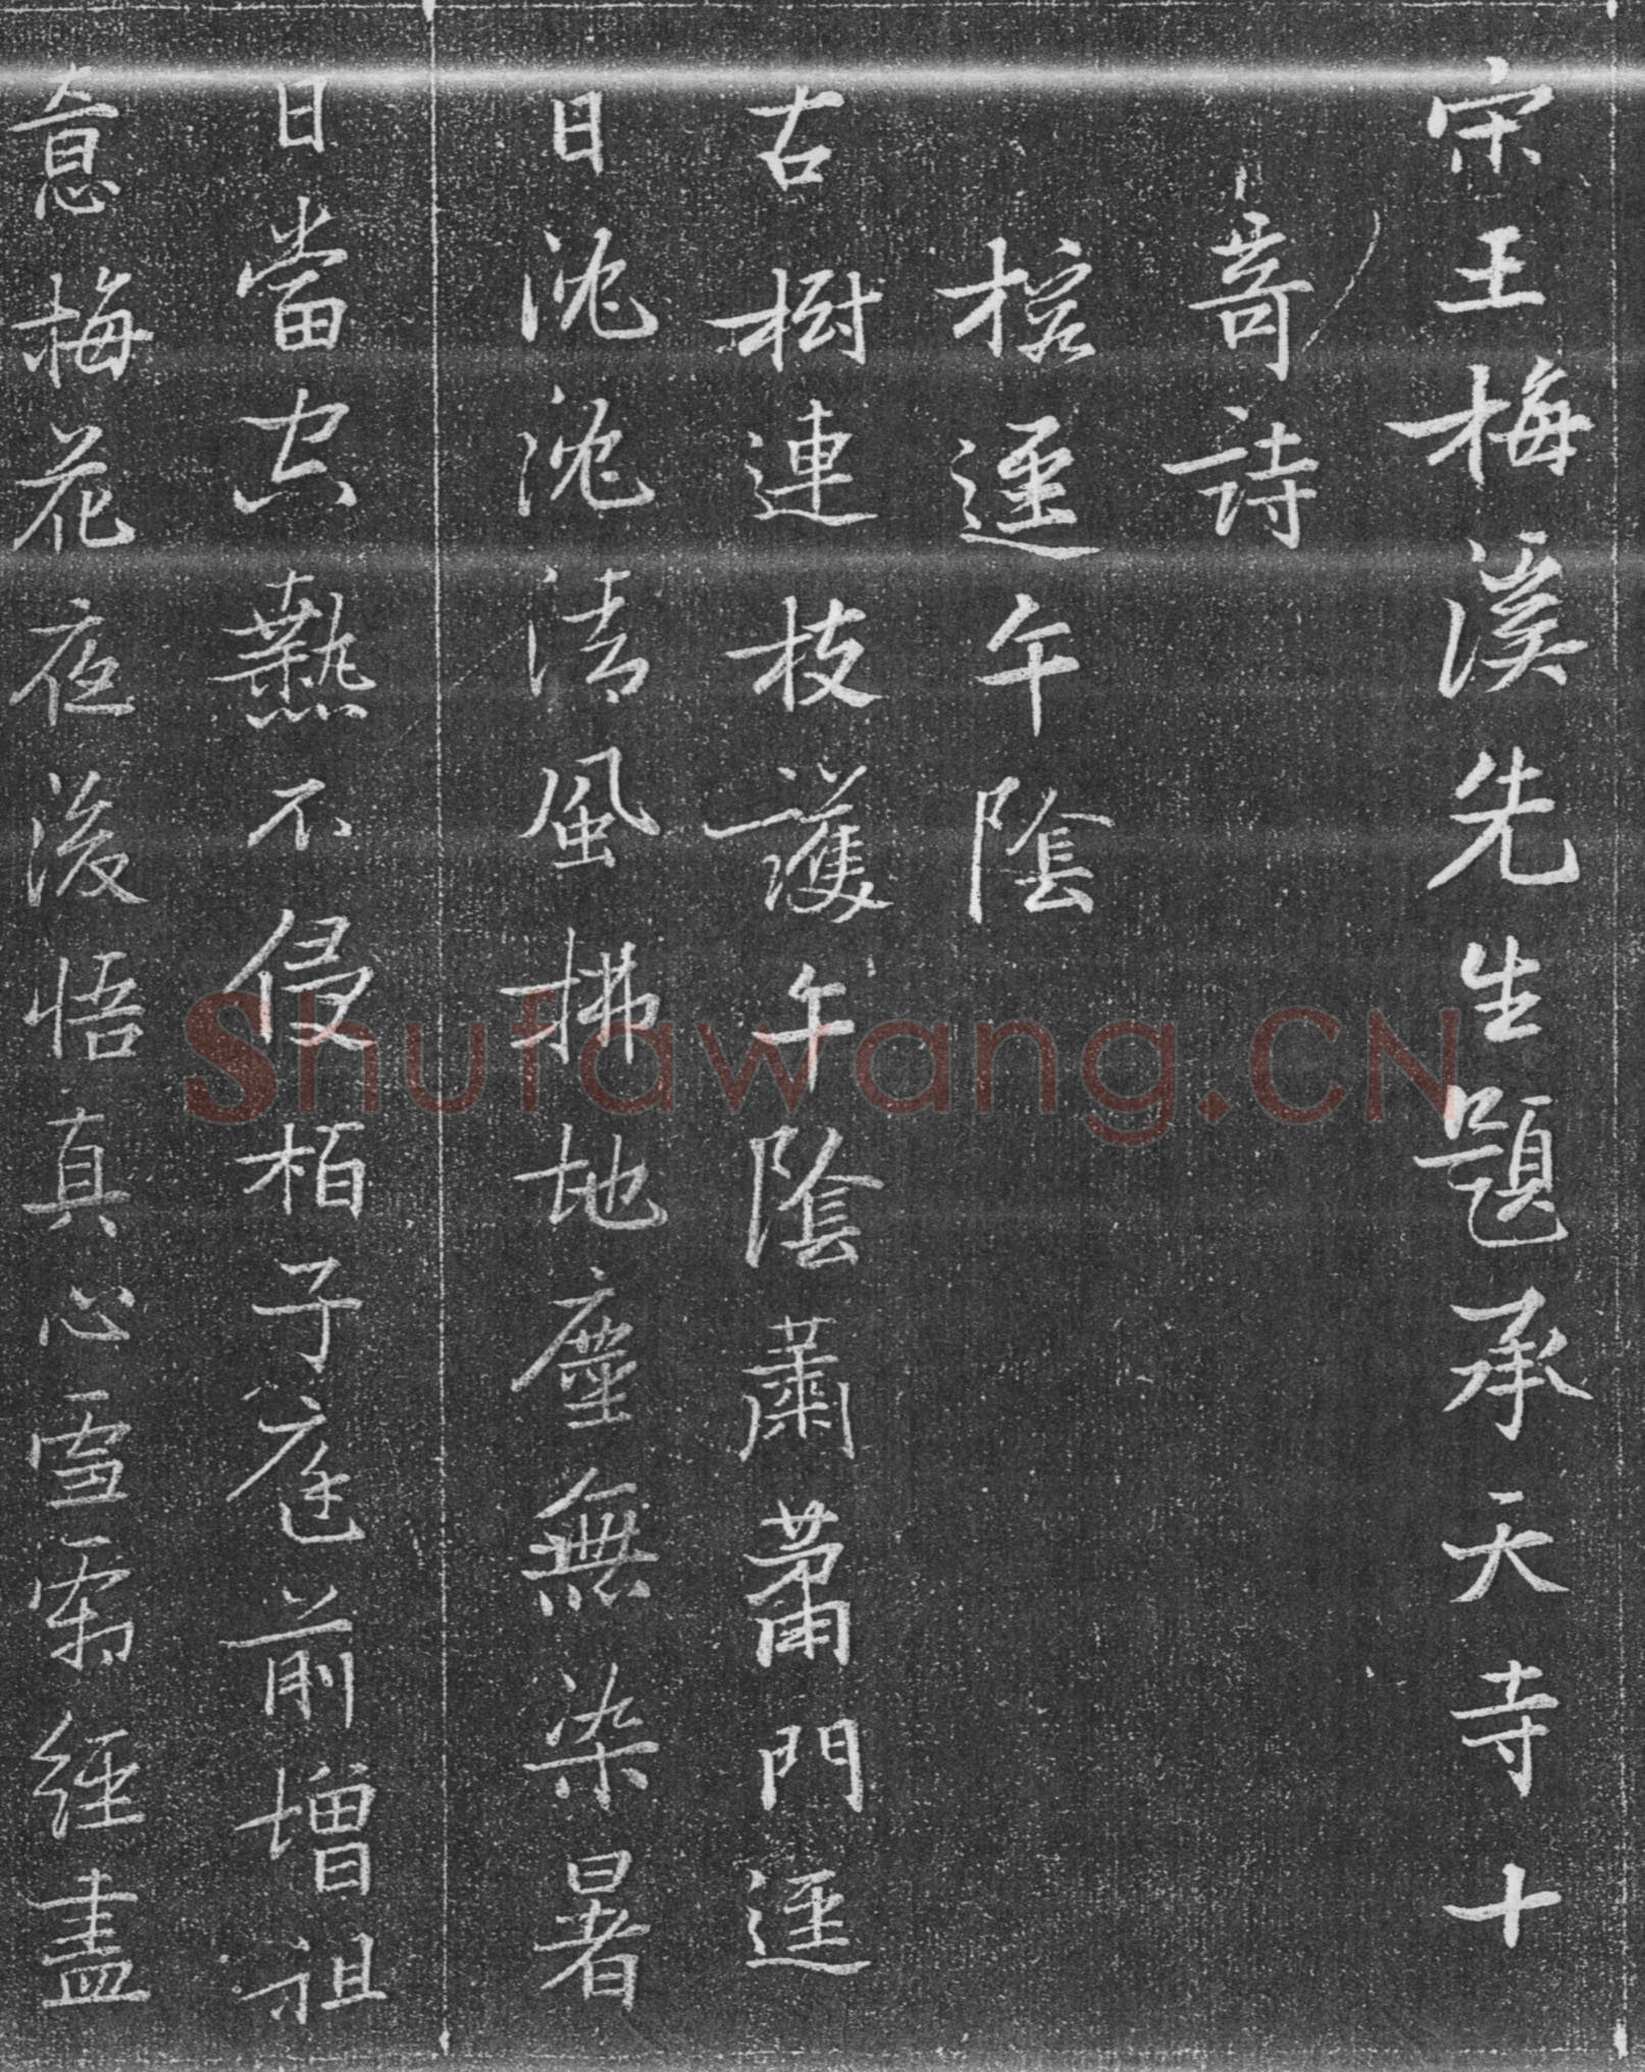 宋王梅溪先生題承天寺十
竒詩
榕逕午陰
古樹連枝護午陰蕭蕭門逕
日沈沈清風拂地塵無染暑
日當空熱不侵栢子庭前增祖
意梅花夜後悟真心雪霜經盡
Shufawang.CN